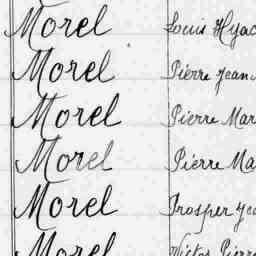 Morel Louis Hyac
Morel Pierre Jean
Morel Pierre Mar
Morel Pierre Ma
Morel Prosper Jea
Morel Victor Pierre